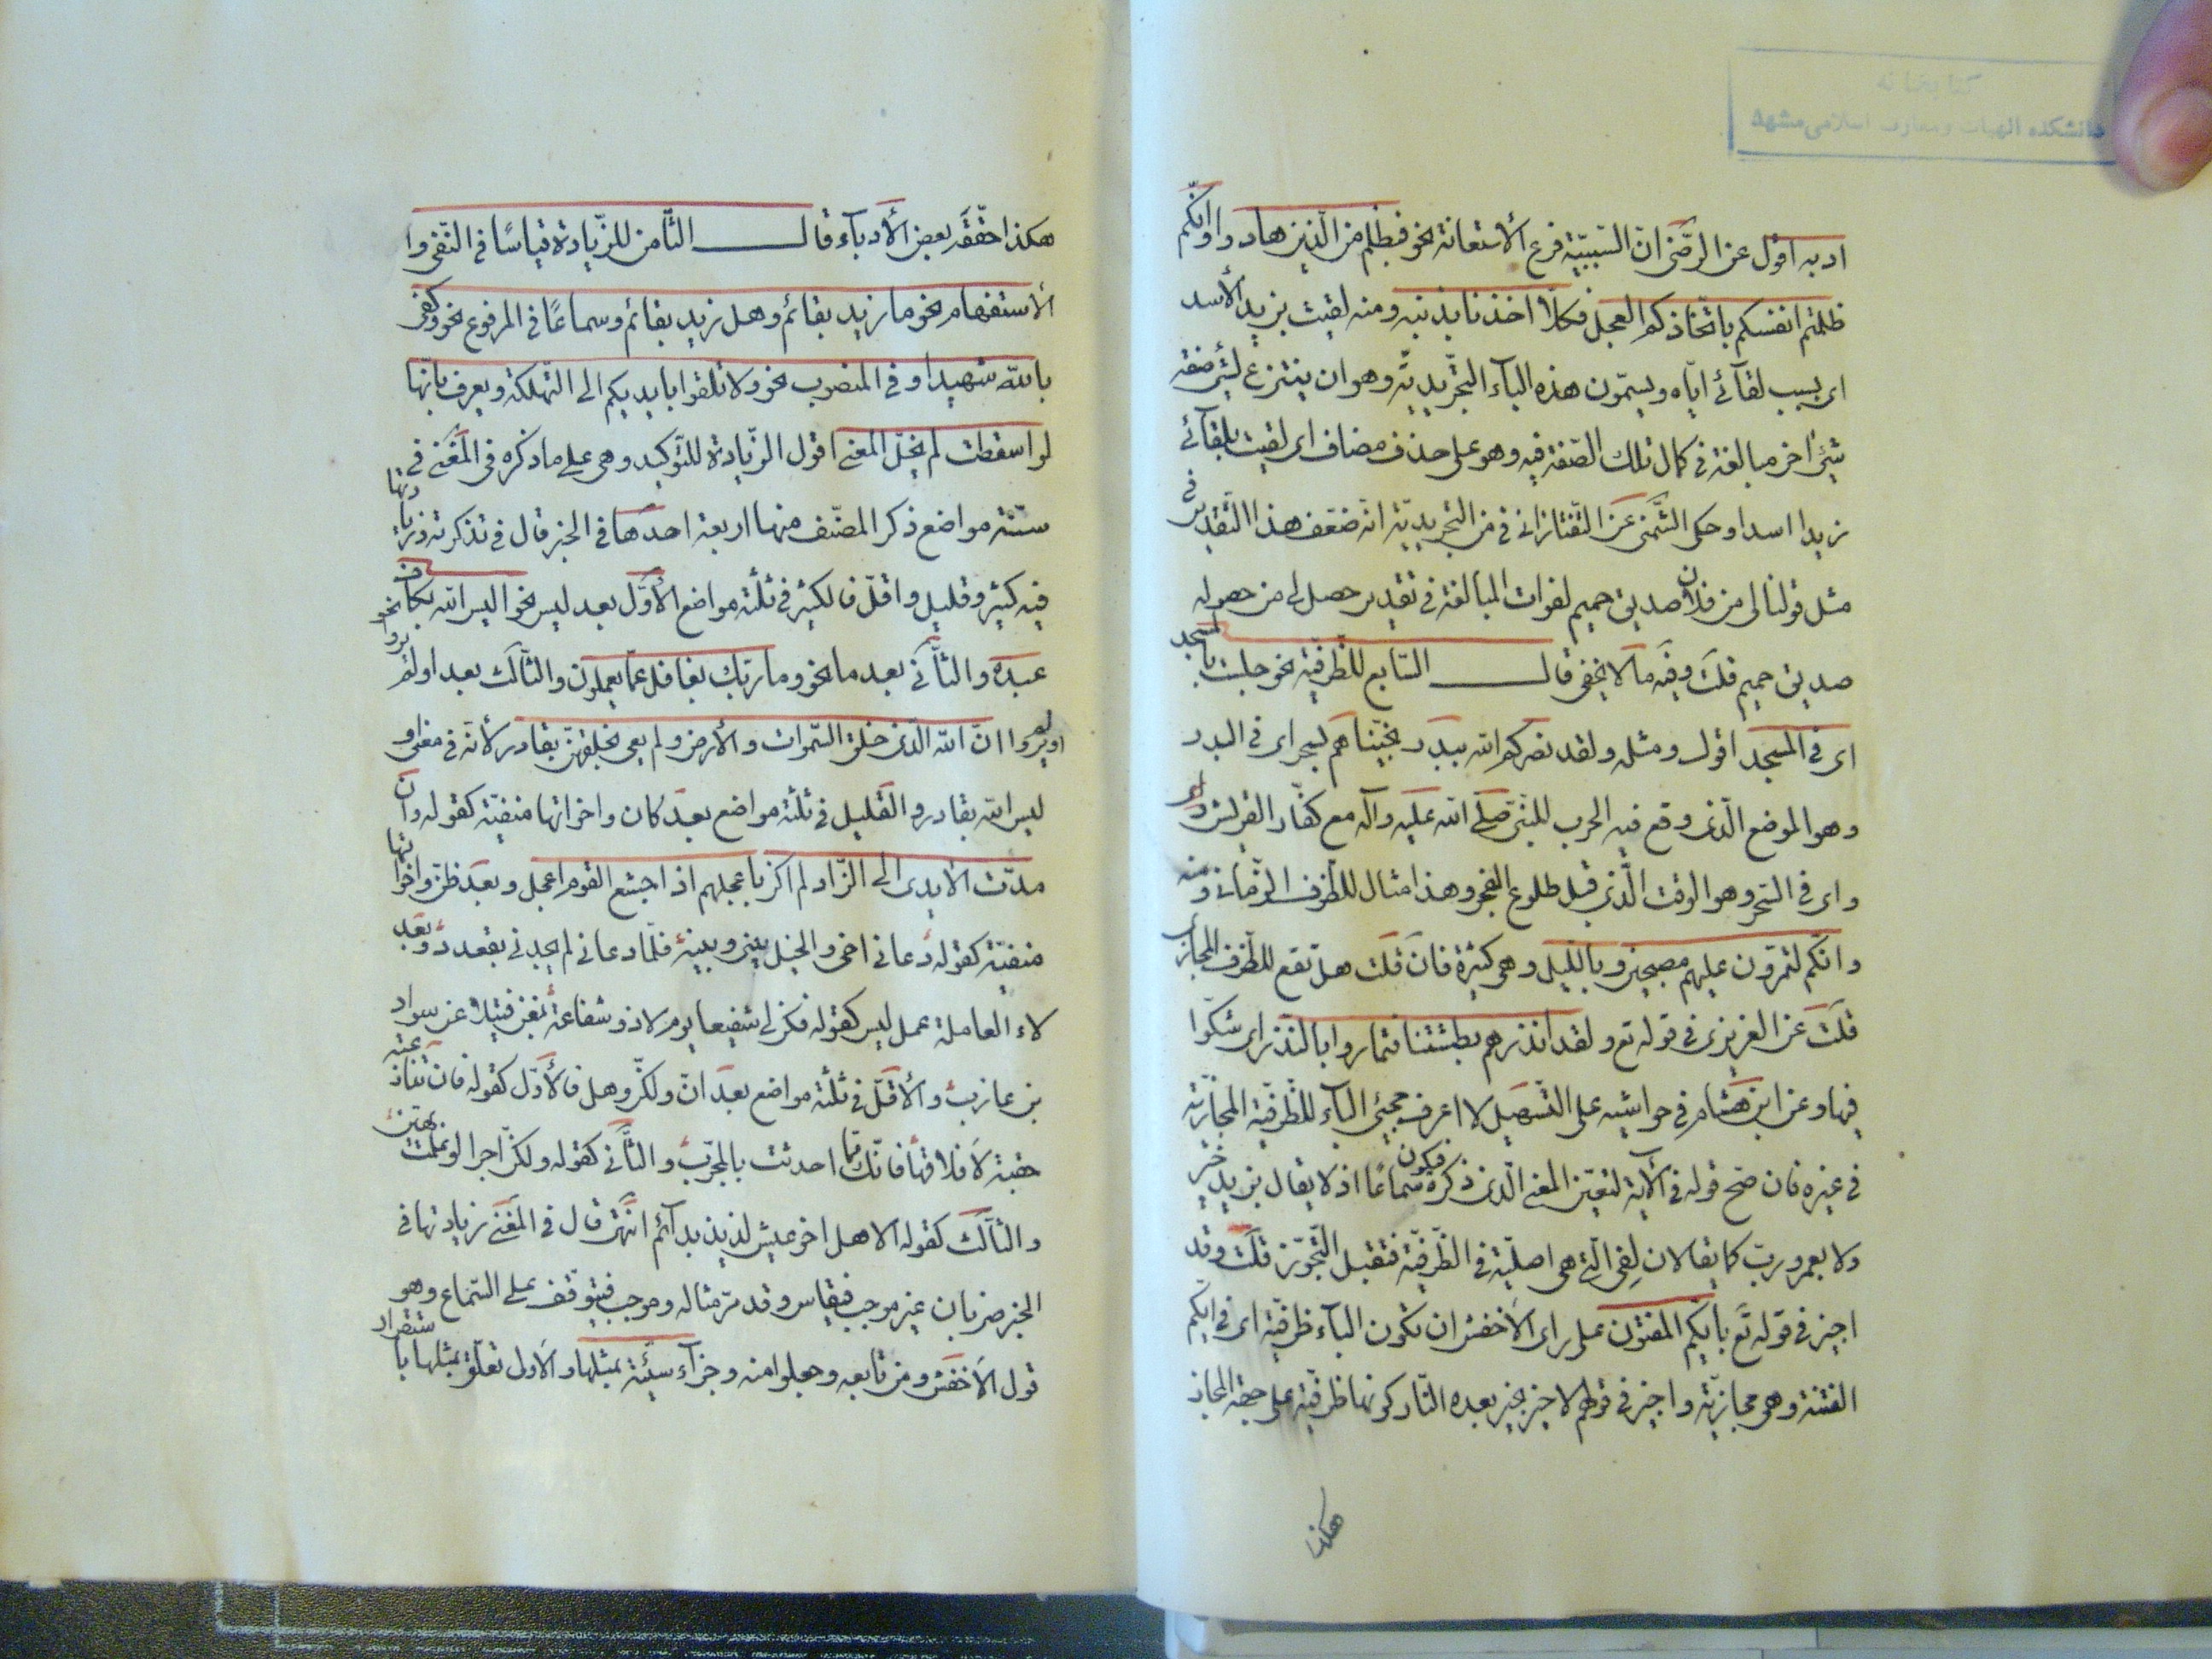 كتابخانه
دانشكده الهيات ومعارف اسلامى مشهد
ادبه اقول عن الرّضى انّ السّببيّة فرع الأستعانة نحو فبظلم من الّذين هادوا وانّكم
ظلمتم انفسكم باتّخاذكم العجل فكلّا اخذنا بذنبه ومنه لقيت بزيد الأسد
اى بسبب لقائى ايّاه ويسمّون هذه الباء التجريديّة وهو ان ينتزع لشئ صفة
شئ اخر مبالغة فى كمال تلك الصّفة فيه وهو على حذف مضاف اى لقيت بلقائى
زيدا اسدا وحكى الشّمنى عن التّفتازانى فى من التجريديّة انّه ضعّف هذا التّقدير فى
مثل قولنا لى من فلان صديق حميم لفوات المبالغة فى تقدير حصل لى من حصوله
صديق حميم قلت وفيه مالا يخفى قال السّابع للظّرفيّة نحو جلست بالمسجد
اى فى المسجد اقول ومثله ولقد نصركم الله ببدر نجّيناهم بسحر اى فى البدر
وهو الموضع الّذى وقع فيه الحرب للنّبى صلّى الله عليه وآله مع كفّار القريش
واى فى السّحر وهو الوقت الّذى قبل طلوع الفجر وهذا مثال للظّرف الزّمانى ومنه
وانّكم لتمرّون عليهم مصبحين وباللّيل وهى كثيرة فان قلت هل تقع للظّرف المجازى
قلت عن العزيزى فى قوله تع ولقد انذرهم بطشتنا فتماروا بالنذر اى شكّوا
فيها وعن ابن هشام فى حواشيه على التّسهيل لا اعرف مجيئ الباء للظّرفيّة المجازيّة
فى غيره فان صحّ قوله فى الآية لتعيّن المعنى الّذى ذكره فيكون سماعًا اذ لا يقال بزيد خير
ولا بعمرو ريب كما يقال لان لفى الّتى هى اصليّة فى الظّرفيّة فتقبل التّجوّز قلت وقد
اجيز فى قوله تع بايّكم المفتون على راى الأخفش ان تكون الباء ظرفيّة اى فى ايّكم
الفتنة وهى مجازيّة واجيز فى قولهم لا خير بخير بعده النّار كونها ظرفيّة على جهة المجاز
هكذا
هكذا حقّقه بعض الأدباء قال الثّامن للزّيادة قياسًا فى النّفى وا
لأستفهام نحو ما زيد بقائم وهل زيد بقائم وسماعًا فى المرفوع نحو وكفى
بالله شهيدا وفى المنصوب نحو ولا تلقوا بايديكم الى التهلكة ويعرف بانّها
لو اسقطت لم يخلّ المعنى اقول الزّيادة للتّوكيد وهى على ما ذكره فى المغنى فى
ستّة مواضع ذكر المصنّف منها اربعة احدها فى الخبر قال فى تذكرته وزيادتها
فيه كثير وقليل واقلّ فالكثير فى ثلثة مواضع الأوّل بعد ليس نحو اليس الله بكاف
عبده والثّانى بعد ما نحو وما ربّك بغافل عمّا يعملون والثّالث بعد اولم يروا نحو
اولم يروا انّ الله الّذى خلق السّموات والأرض ولم يعى بخلقهنّ بقادر لأنّه فى معنى او
ليس الله بقادر والقليل فى ثلثة مواضع بعد كان واخواتها منفيّة كقوله وان
مدّت الأيدى الى الزّاد لم اكن باعجلهم اذ اجشع القوم اعجل وبعد ظنّ واخواتها
منفيّة كقوله دعانى اخى والخيل بينى وبينه فلمّا دعانى لم يجدنى بقعدد وبعد
لاء العاملة عمل ليس كقوله فكن لى شفيعا يوم لا ذو شفاعة بمغن فتيلا عن سواد
بن عازب والأقلّ فى ثلثة مواضع بعد انّ ولكنّ وهل فالأوّل كقوله فان تنا عنها
حقبة لا تلاقها فانّك ممّا احدثت بالمجرّب والثّانى كقوله ولكنّ اجرا لو علمت بهيّن
والثّالث كقوله الا هل اخو عيش لذيذ بدائم انتهى قال فى المغنى زيادتها فى
الخبر ضربان غير موجب فيقاس وقد مرّ مثاله وموجب فيتوقّف على السّماع وهو
قول الأخفش ومن تابعه وجعلوا منه وجزاء سيّئة بمثلها والأولى تعلّق بمثلها باستقرار